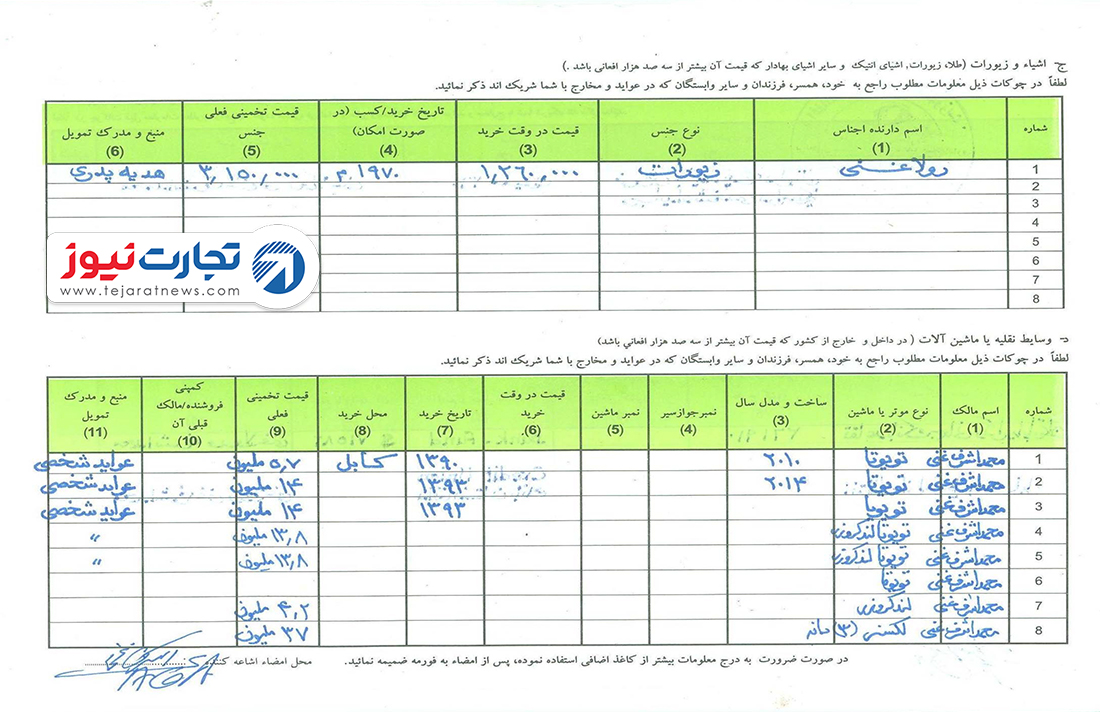 ج- اشیاء و زیورات (طلا، زیورات, اشیای انتیک و سایر اشیای بهادار که قیمت آن بیشتر از سه صد هزار افغانی باشد .)
لطفاً در چوکات ذیل معلومات مطلوب راجع به خود، همسر، فرزندان و سایر وابستگان که در عواید و مخارج با شما شریک اند ذکر نمائید.
شماره اسم دارنده اجناس (1) نوع جنس (2) قیمت در وقت خرید (3) تاریخ خرید/کسب (در صورت امکان) (4) قیمت تخمینی فعلی جنس (5) منبع و مدرک تمویل (6)
1 رولا غنی زیورات ۱٫۲۶۰٫۰۰۰ ۱۹۷۰ م ۳٫۱۵۰٫۰۰۰ هدیه پدری
2
3
4
5
6
7
8
تجارت نیوز
www.tejaratnews.com
د- وسایط نقلیه یا ماشین آلات ( در داخل و خارج از کشور که قیمت آن بیشتر از سه صد هزار افغاني باشد)
لطفاً در چوکات ذیل معلومات مطلوب راجع به خود، همسر، فرزندان و سایر وابستگان که در عواید و مخارج با شما شریک اند ذکر نمائید.
شماره اسم مالک (1) نوع موتر یا ماشین (2) ساخت و مدل سال (3) نمبرجوازسیر (4) نمبر ماشین (5) قیمت در وقت خرید (6) تاریخ خرید (7) محل خرید (8) قیمت تخمینی فعلی (9) کمپنی فروشنده/مالک قبلی آن (10) منبع و مدرک تمویل (11)
1 محمد اشرف غنی تویوتا ۲۰۱۰ ۱۳۹۰ کابل ۵٫۷ ملیون عواید شخصی
2 محمد اشرف غنی تویوتا ۲۰۱۴ ۱۳۹۳ ۱۴ ملیون عواید شخصی
3 محمد اشرف غنی تویوتا ۱۳۹۳ ۱۴ ملیون عواید شخصی
4 محمد اشرف غنی تویوتا لندکروزر ۱۳٫۸ ملیون "
5 محمد اشرف غنی تویوتا لندکروزر ۱۳٫۸ ملیون "
6 محمد اشرف غنی تویوتا
7 محمد اشرف غنی لندکروزر ۴٫۲ ملیون
8 محمد اشرف غنی لکسس (۳) دانه ۳۷ ملیون
در صورت ضرورت به درج معلومات بیشتر از کاغذ اضافی استفاده نموده، پس از امضاء به فورمه ضمیمه نمائید. محل امضاء اشاعه کننده